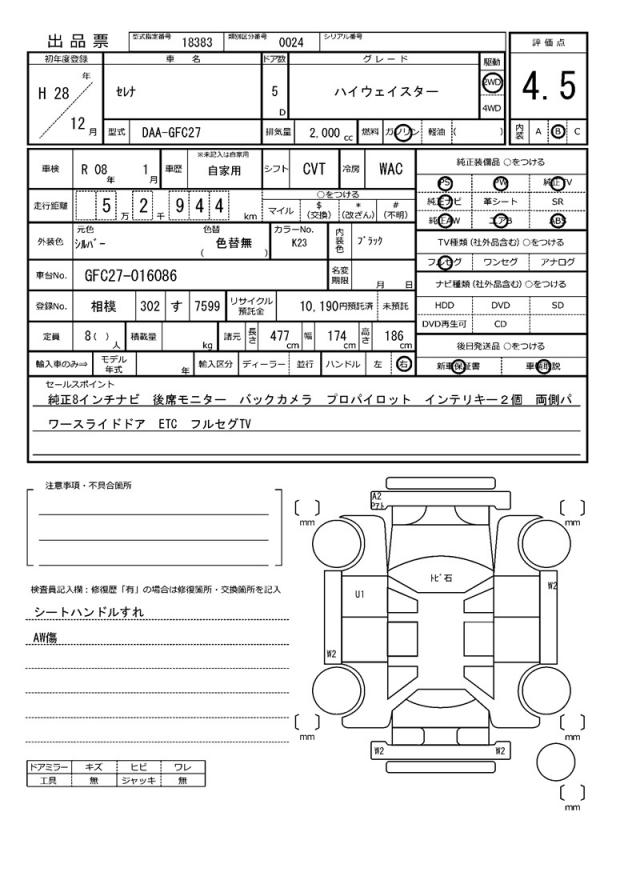 出品票
型式指定番号 18383 類別区分番号 0024 シリアル番号
評価点
4.5
内装 A B C
初年度登録 車名 ドア数 グレード 駆動
H 28 年 12 月
セレナ 5 D ハイウェイスター 2WD 4WD
型式 DAA-GFC27 排気量 2,000 cc 燃料 ガソリン 軽油 ( )
車検 R 08 年 1 月 車歴 ※未記入は自家用 自家用 シフト CVT 冷房 WAC
走行距離 5 万 2 千 9 4 4 km ○をつける
マイル $ (交換) * (改ざん) # (不明)
外装色 元色 シルバー 色替 色替無 ( ) カラーNo. K23 内装色 ブラック
車台No. GFC27-016086 名変期限 月 日
登録No. 相模 302 す 7599 リサイクル預託金 10,190円預託済 未預託
定員 8( ) 人 積載量 kg 諸元 長さ 477 cm 幅 174 cm 高さ 186 cm
輸入車のみ⇒ モデル年式 年 輸入区分 ディーラー 並行 ハンドル 左 右
純正装備品 ○をつける
PS PW 純正TV
純正ナビ 革シート SR
純正AW エアB ABS
TV種類 (社外品含む) ○をつける
フルセグ ワンセグ アナログ
ナビ種類 (社外品含む) ○をつける
HDD DVD SD
DVD再生可 CD
後日発送品 ○をつける
新車保証書 車輌取説
セールスポイント
純正8インチナビ 後席モニター バックカメラ プロパイロット インテリキー2個 両側パ
ワースライドドア ETC フルセグTV
注意事項・不具合箇所
検査員記入欄：修復歴「有」の場合は修復箇所・交換箇所を記入
シートハンドルすれ
AW傷
ドアミラー キズ ヒビ ワレ
工具 無 ジャッキ 無
A2
mm
mm
トビ石
U1
W2
W2
mm
mm
W2
W2
mm